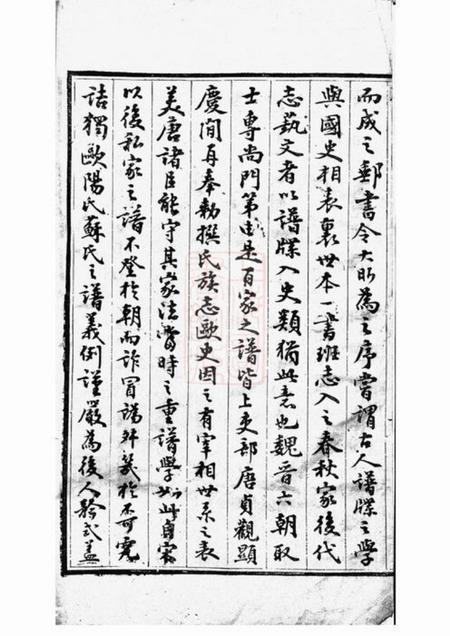 而成之郵書令大昕為之序嘗謂古人譜牒之學
與國史相表裏世本一書班志入之春秋家後代
志藝文者以譜牒入史類猶此意也魏晉六朝取
士專尚門第由是百家之譜皆上吏部唐貞觀顯
慶間再奉勅撰氏族志歐史因之有宰相世系之表
美唐諸臣能守其家法當時之重譜學如此自宋
以後私家之譜不登於朝而詐冒譌舛幾於不可究
詰獨歐陽氏蘇氏之譜義例謹嚴為後人矜式蓋